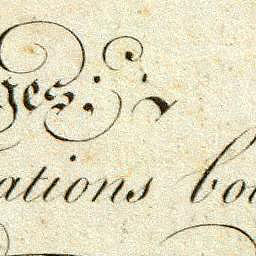 ges:
ations bo